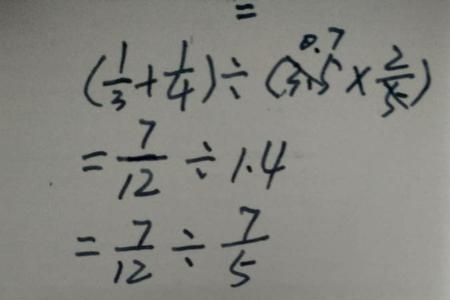 =
(1/3+1/4)÷(3.5×2/5) 0.7
=7/12÷1.4
=7/12÷7/5